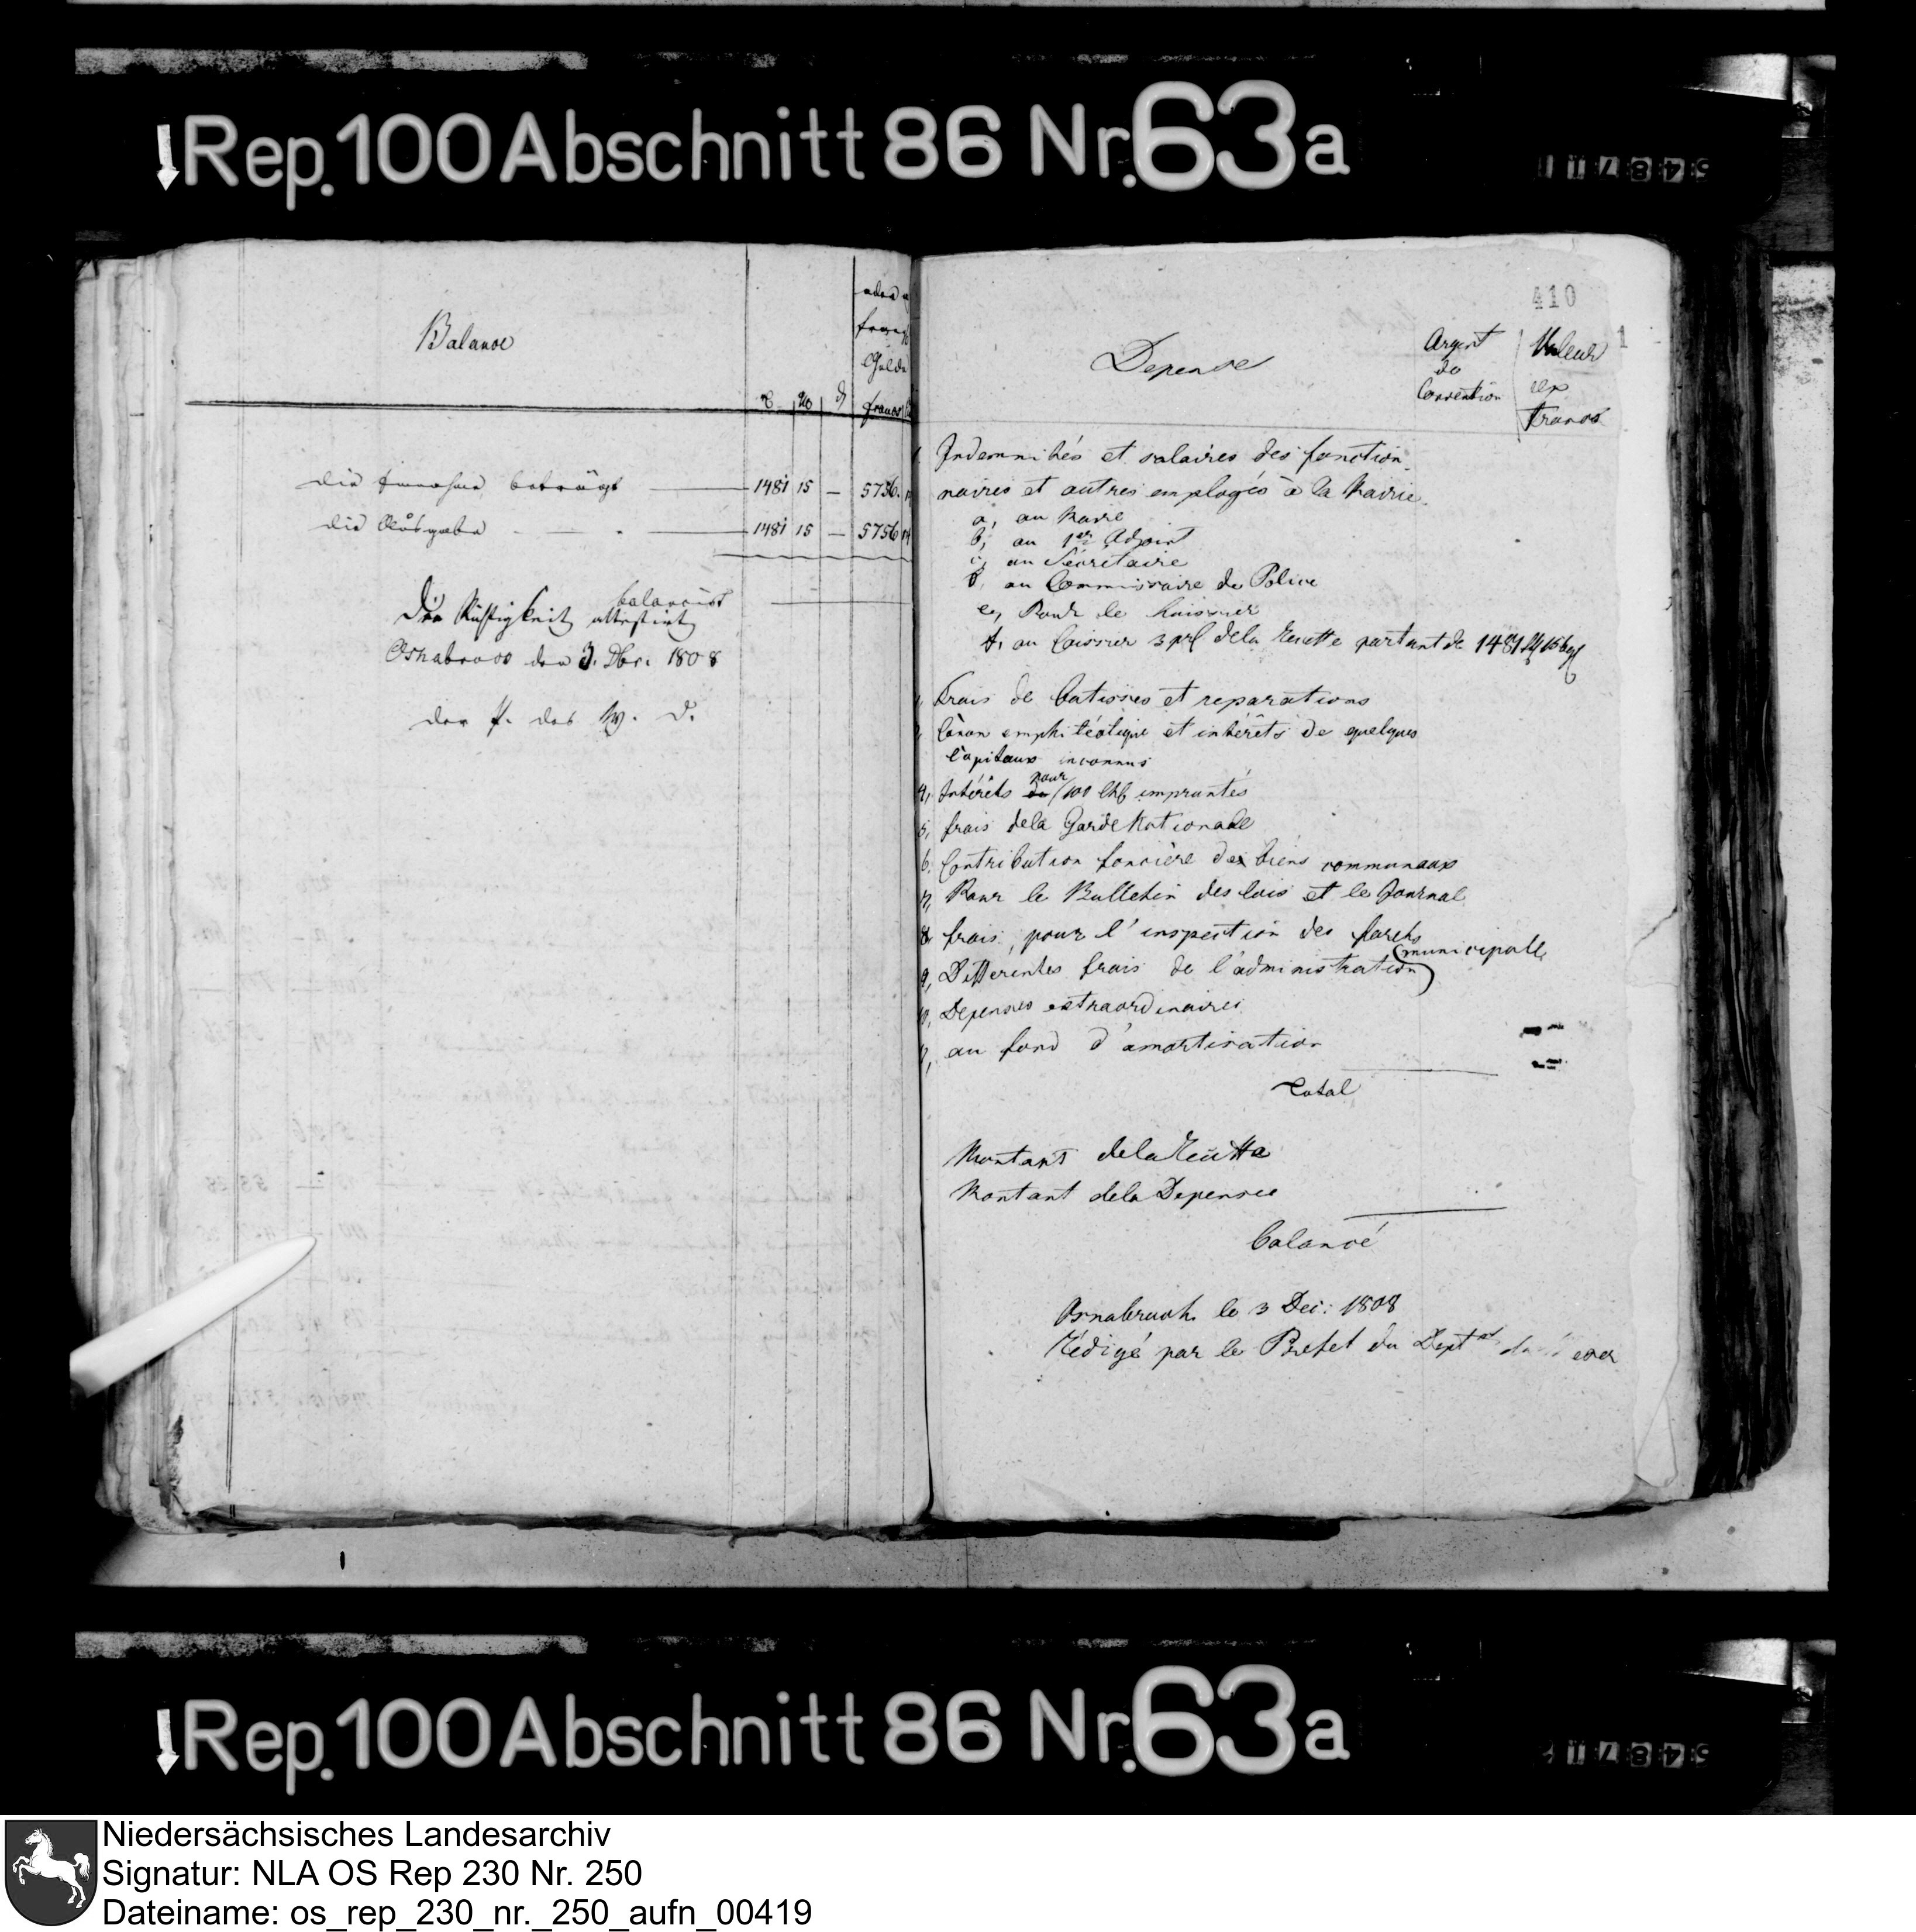 Rep. 100 Abschnitt 86 Nr. 63a
Balance
franz
francs
die Einnahme beträgt 1481 15 — 5756.
die Ausgabe 1481 15 — 5756
balancirt
Die Richtigkeit attestirt
Osnabrück den 3. Dbr. 1808
der P. des W. D.
410
1
Depense
Argent
de
Convention
Valeur
en
francs
1. Indemnités et salaires des fonction-
naires et autres employés à la Mairie.
a, au Maire
b, au 1er Adjoint
c, au Sécretaire
d, au Commissaire de Police
e, Pour le huissier
f, au Caissier 3 pCt dela Recette partant de 1481
Frais de batisses et reparations
Cànon emphitéotique et intérêts de quelques
Capitaux inconnus
pour
4, Intérêts de 100 empruntés
5, frais dela Garde Nationale
6. Contribution foncière des biens communaux
7, Pour le Bulletin des lois et le Journal
8 frais, pour l'inspection des forets
municipale
9, Differentes frais de l'administration
10, Depenses extraordinaires
au fond d'amortisation
Total
Montant dela Recette
Montant dela Depense
balancé
Osnabruck le 3 Dec: 1808
Rédigé par le Prefet du Dept
Rep. 100 Abschnitt 86 Nr. 63a
Niedersächsisches Landesarchiv
Signatur: NLA OS Rep 230 Nr. 250
Dateiname: os_rep_230_nr._250_aufn_00419